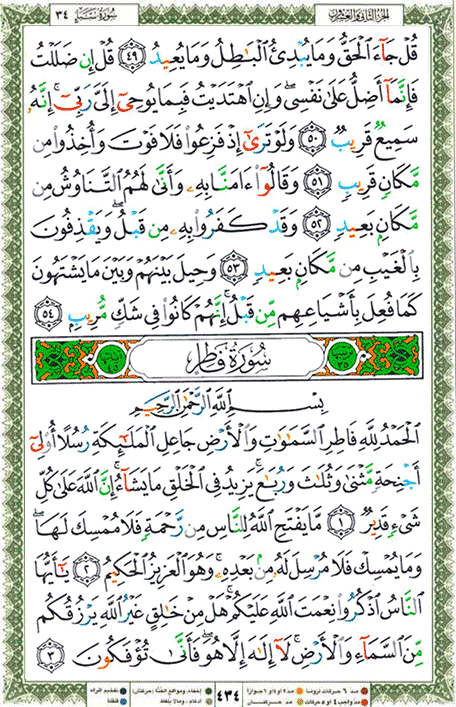 الجزء الثاني والعشرون
سُورَةُ سَبَإٍ ٣٤
قُلْ جَآءَ ٱلْحَقُّ وَمَا يُبْدِئُ ٱلْبَـٰطِلُ وَمَا يُعِيدُ ٤٩ قُلْ إِن ضَلَلْتُ
فَإِنَّمَآ أَضِلُّ عَلَىٰ نَفْسِى ۖ وَإِنِ ٱهْتَدَيْتُ فَبِمَا يُوحِىٓ إِلَىَّ رَبِّىٓ ۚ إِنَّهُۥ
سَمِيعٌ قَرِيبٌ ٥٠ وَلَوْ تَرَىٰٓ إِذْ فَزِعُوا۟ فَلَا فَوْتَ وَأُخِذُوا۟ مِن
مَّكَانٍ قَرِيبٍ ٥١ وَقَالُوٓا۟ ءَامَنَّا بِهِۦ وَأَنَّىٰ لَهُمُ ٱلتَّنَاوُشُ مِن
مَّكَانٍۭ بَعِيدٍ ٥٢ وَقَدْ كَفَرُوا۟ بِهِۦ مِن قَبْلُ ۖ وَيَقْذِفُونَ
بِٱلْغَيْبِ مِن مَّكَانٍۭ بَعِيدٍ ٥٣ وَحِيلَ بَيْنَهُمْ وَبَيْنَ مَا يَشْتَهُونَ
كَمَا فُعِلَ بِأَشْيَاعِهِم مِّن قَبْلُ ۚ إِنَّهُمْ كَانُوا۟ فِى شَكٍّ مُّرِيبٍۭ ٥٤
سُورَةُ فَاطِرٍ
بِسْمِ ٱللَّهِ ٱلرَّحْمَـٰنِ ٱلرَّحِيمِ
ٱلْحَمْدُ لِلَّهِ فَاطِرِ ٱلسَّمَـٰوَٰتِ وَٱلْأَرْضِ جَاعِلِ ٱلْمَلَـٰٓئِكَةِ رُسُلًا أُو۟لِىٓ
أَجْنِحَةٍ مَّثْنَىٰ وَثُلَـٰثَ وَرُبَـٰعَ ۚ يَزِيدُ فِى ٱلْخَلْقِ مَا يَشَآءُ ۚ إِنَّ ٱللَّهَ عَلَىٰ كُلِّ
شَىْءٍ قَدِيرٌ ١ مَّا يَفْتَحِ ٱللَّهُ لِلنَّاسِ مِن رَّحْمَةٍ فَلَا مُمْسِكَ لَهَا ۖ
وَمَا يُمْسِكْ فَلَا مُرْسِلَ لَهُۥ مِنۢ بَعْدِهِۦ ۚ وَهُوَ ٱلْعَزِيزُ ٱلْحَكِيمُ ٢ يَـٰٓأَيُّهَا
ٱلنَّاسُ ٱذْكُرُوا۟ نِعْمَتَ ٱللَّهِ عَلَيْكُمْ ۚ هَلْ مِنْ خَـٰلِقٍ غَيْرُ ٱللَّهِ يَرْزُقُكُم
مِّنَ ٱلسَّمَآءِ وَٱلْأَرْضِ ۚ لَآ إِلَـٰهَ إِلَّا هُوَ ۖ فَأَنَّىٰ تُؤْفَكُونَ ٣
٤٣٤